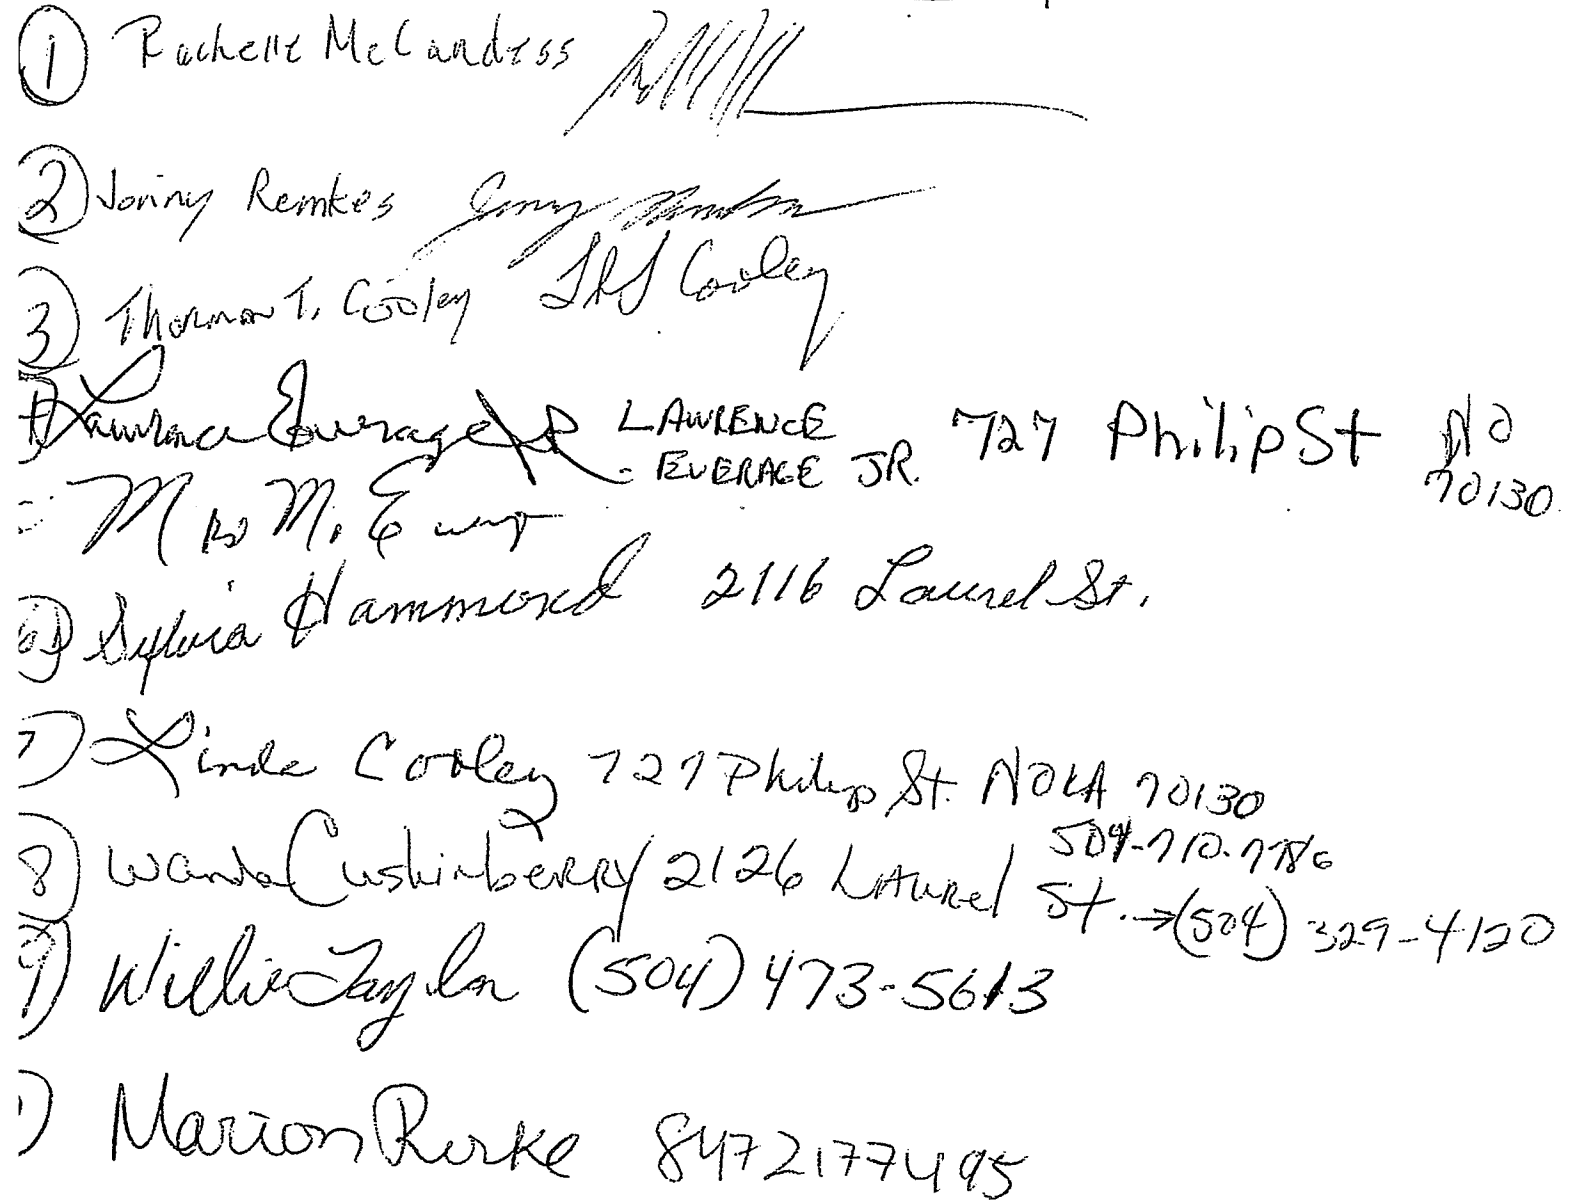 1 Rachelle McCandless
2 Jonny Remkes
3 Thurman T. Cooley Cooley
Lawrence Everage JR LAWRENCE EVERAGE JR. 727 Philip St NO 70130
Mrs M. E
6 Sylvia Hammond 2116 Laurel St.
7) Linda Cooley 727 Philip St. NOLA 70130
504-710-7786
8 Wanda Cushinberry 2126 Laurel St. →(504) 329-4120
9) Willie Taylor (504) 473-5613
) Marion 8472177495